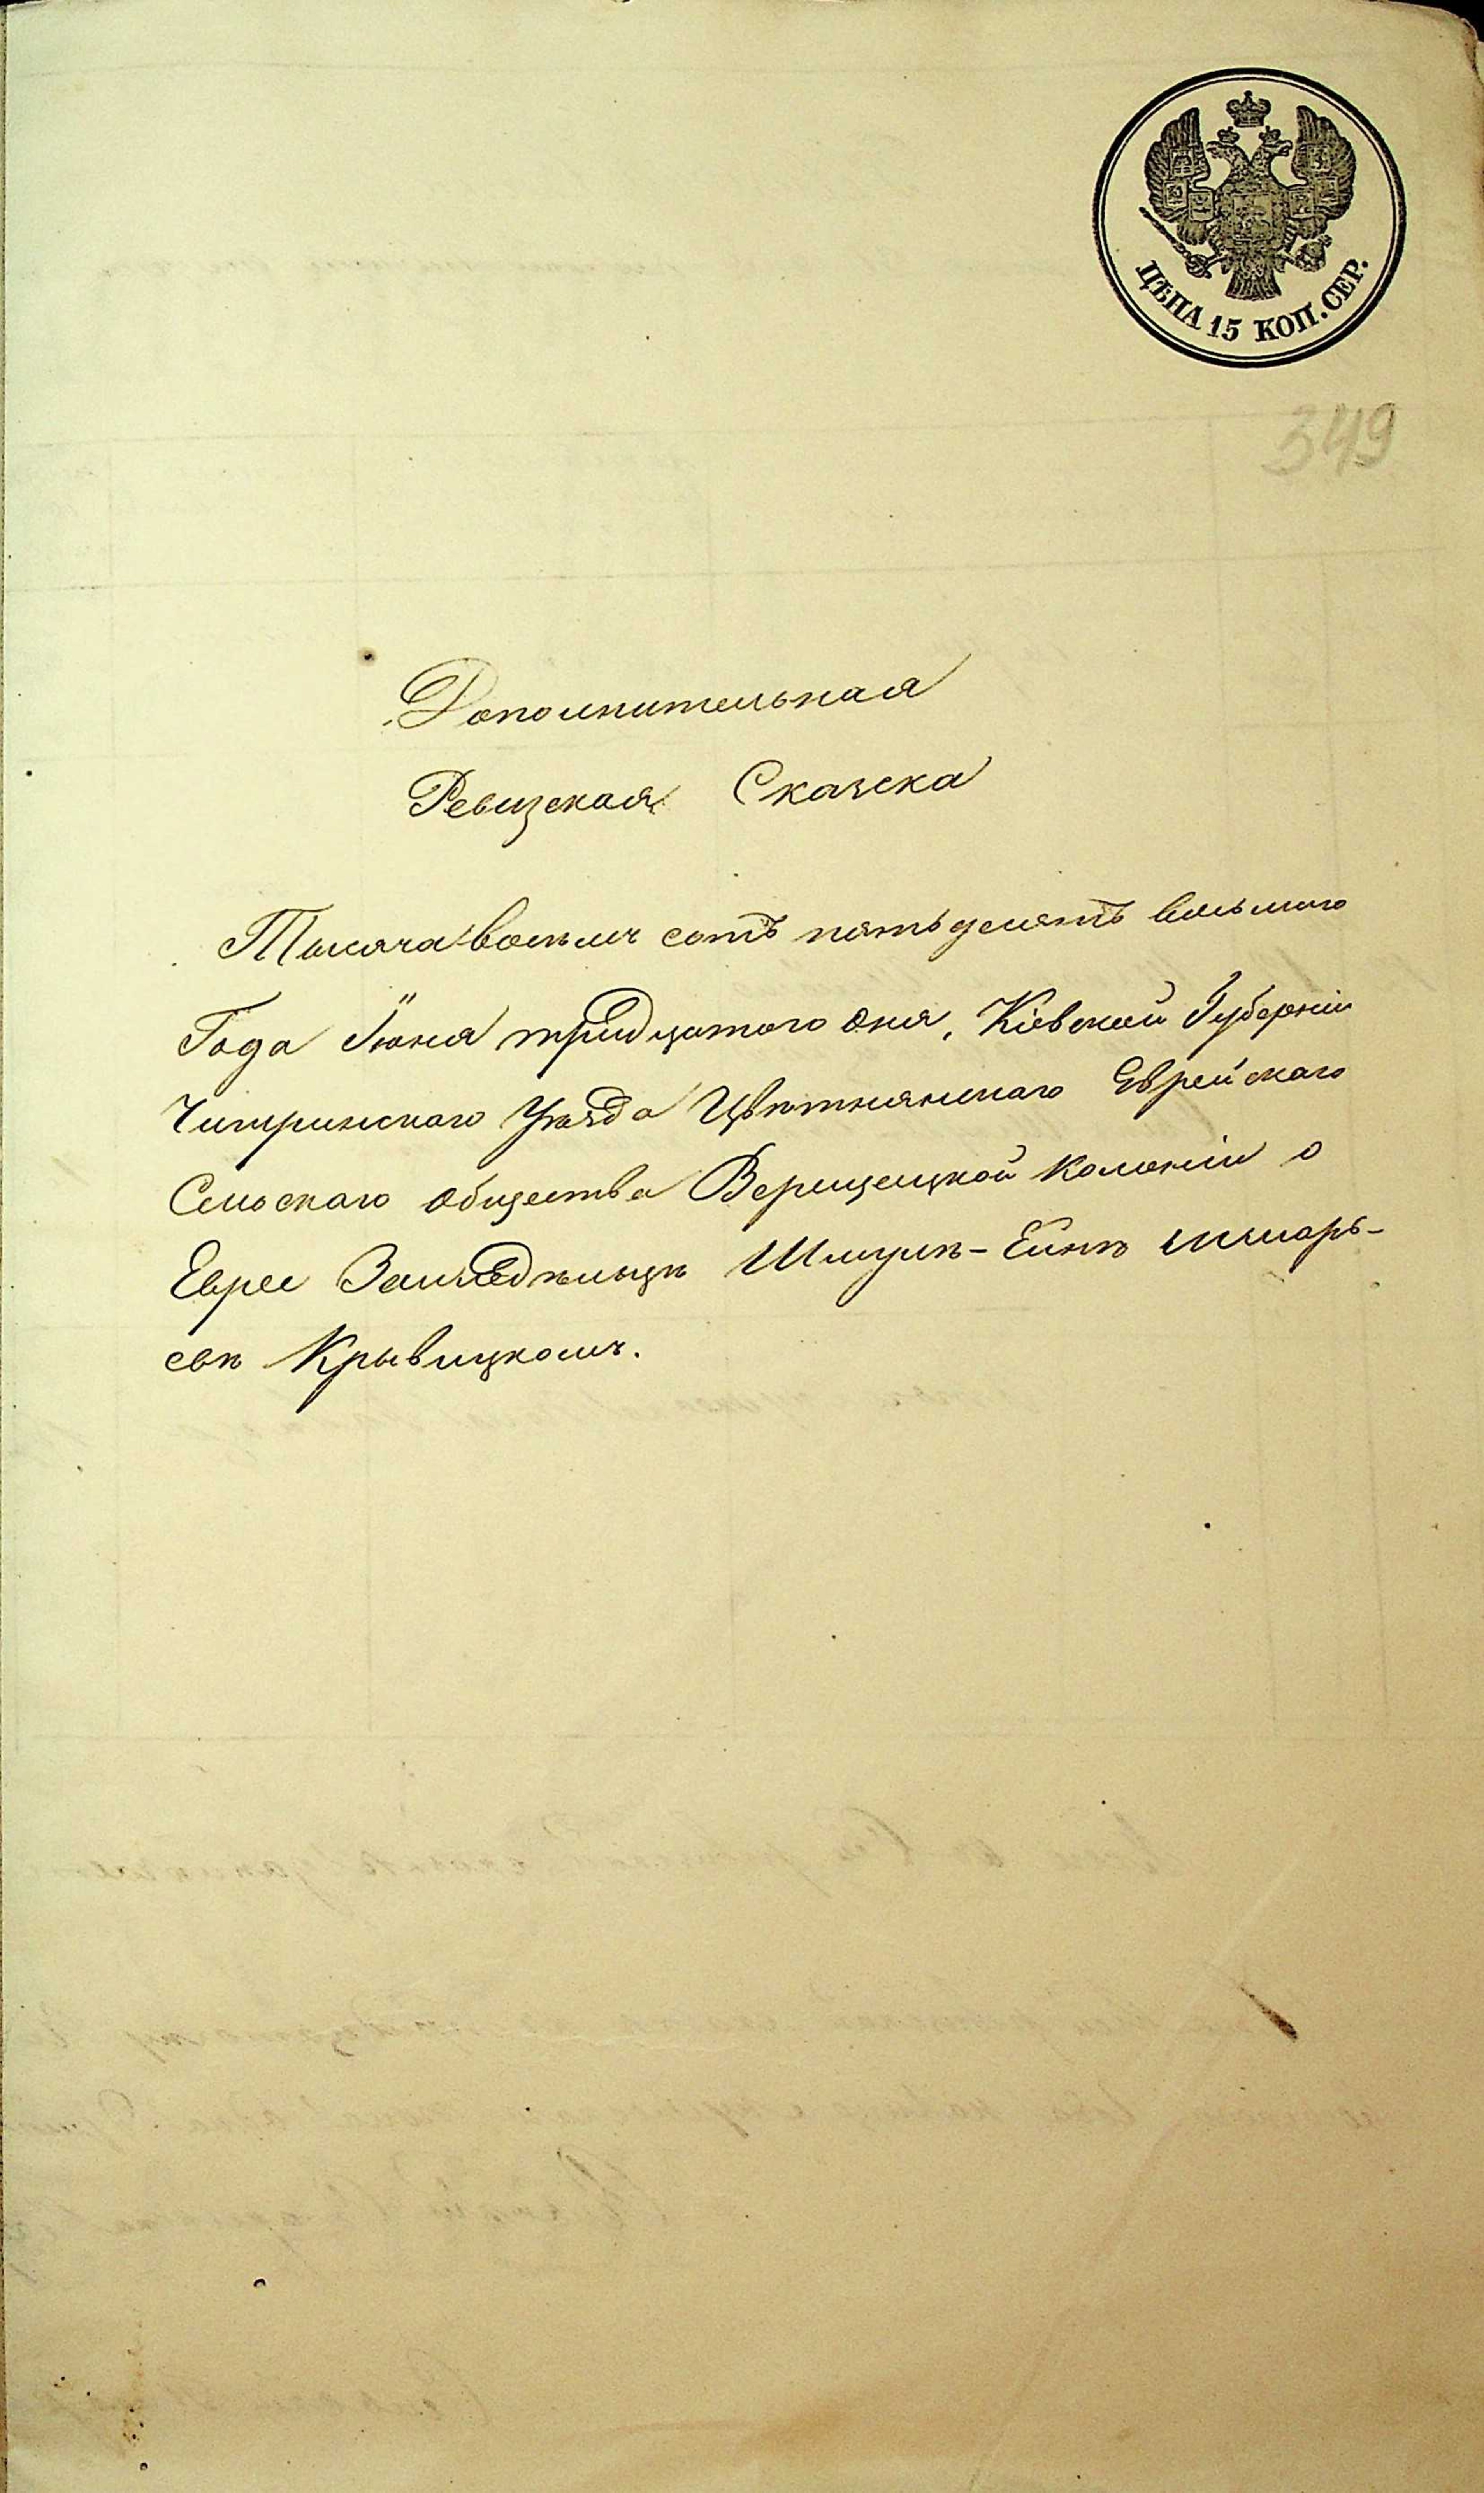 ЦѢНА 15 КОП. СЕР.
349
Дополнительная
Ревизская Сказска
Тысяча восемь сотъ пятьдесятъ восьмаго
Года Іюня тридцатаго дня, Кіевской Губерніи
Чигринскаго Уѣзда Цвѣтнянскаго Еврейскаго
Сельскаго общества Верещецкой колоніи о
Еврее Землѣдѣльцѣ Шмулѣ-
свѣ Крывицкомъ.